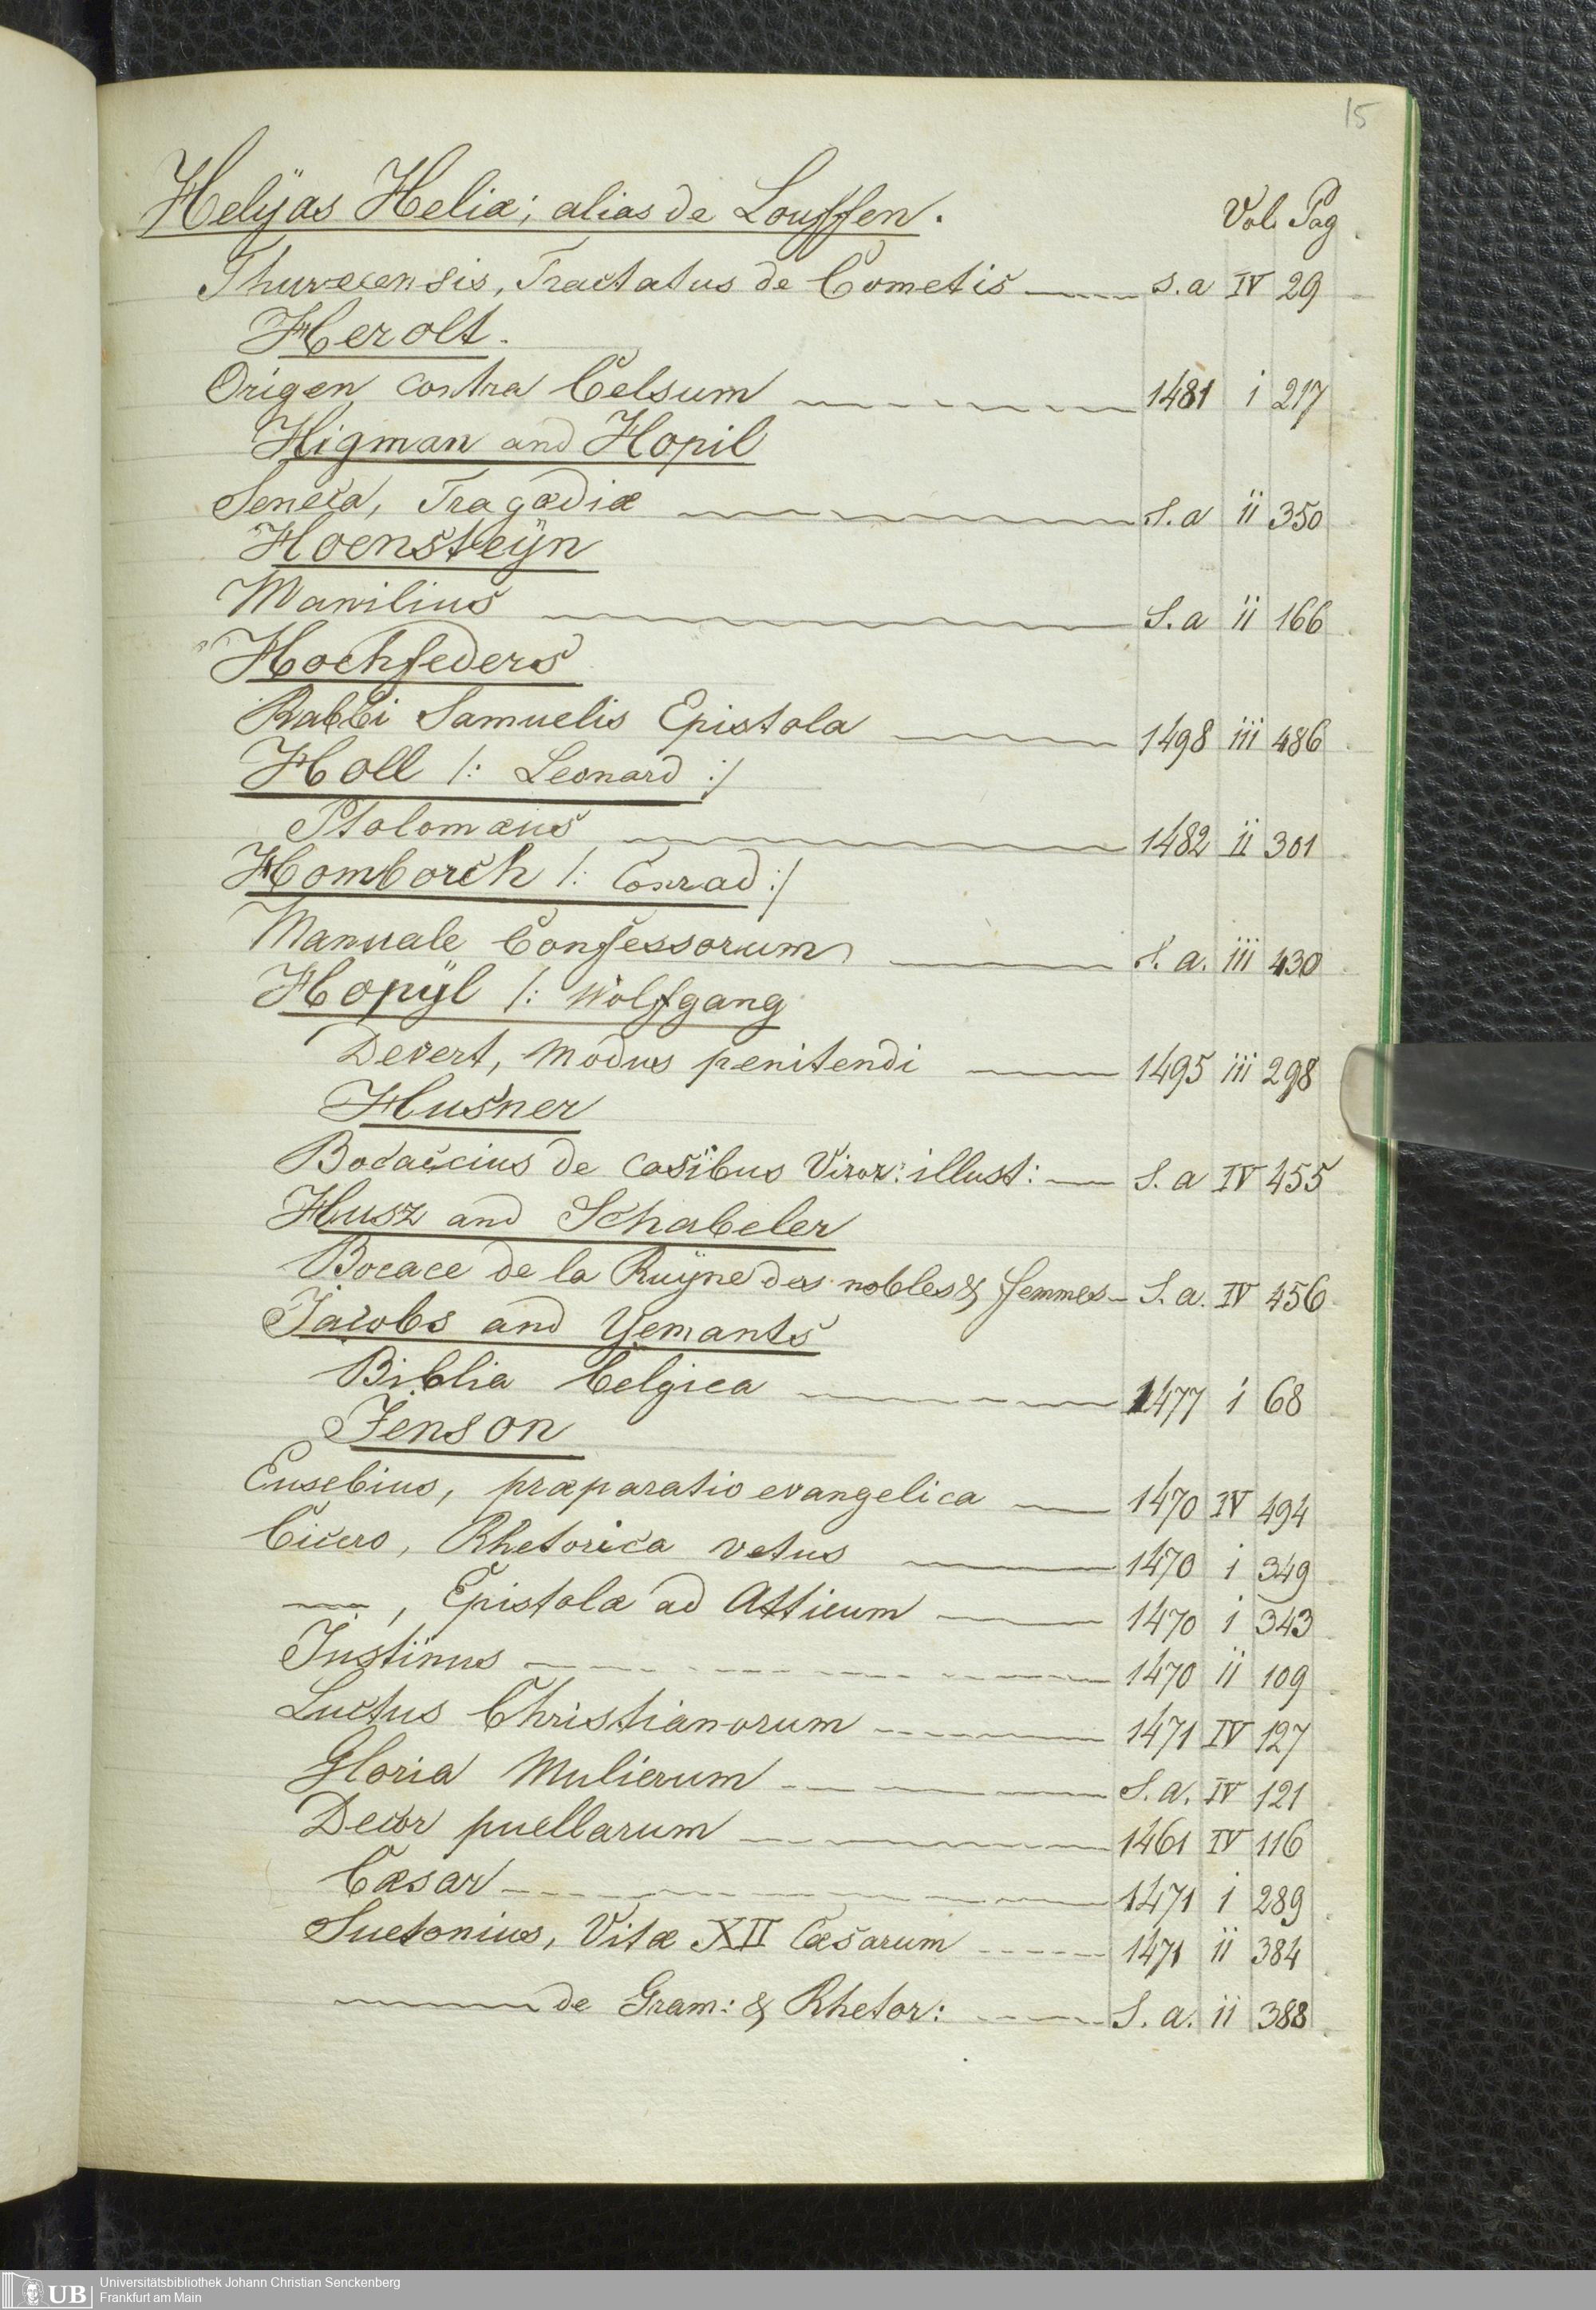 15
Helÿas Heliæ; alias de Louffen. Vol. Pag
Thurecensis, Tractatus de Cometis s.a IV 29
Herolt.
Origen contra Celsum 1481 i 217
Higman and Hopil
Seneca, Tragædiæ S.a ii 350
Hoensteÿn
Manilius S.a ii 166
Hochfeders
Rabbi Samuelis Epistola 1498 iii 486
Holl /: Leonard :/
Ptolomæus 1482 ii 301
Homborch /: Conrad :/
Manuale Confessorum S. a. iii 430
Hopÿl /: Wolfgang
Devert, Modus penitendi 1495 iii 298
Husner
Bocaccius de casibus Viror: illust: S. a IV 455
Husz and Schabeler
Bocace de la Ruÿne des nobles & femmes S. a. IV 456
Jacobs and Yemants
Biblia Belgica 1477 i 68
Jenson
Eusebius, præparatio evangelica 1470 IV 494
Cicero, Rhetorica vetus 1470 i 349
—, Epistolæ ad Atticum 1470 i 343
Justinus 1470 ii 109
Luctus Christianorum 1471 IV 127
Gloria Mulierum S. a. IV 121
Decor puellarum 1461 IV 116
Cæsar 1471 i 289
Suetonius, Vitæ XII Cæsarum 1471 ii 384
— de Gram: & Rhetor: S. a. ii 388
UB Universitätsbibliothek Johann Christian Senckenberg
Frankfurt am Main